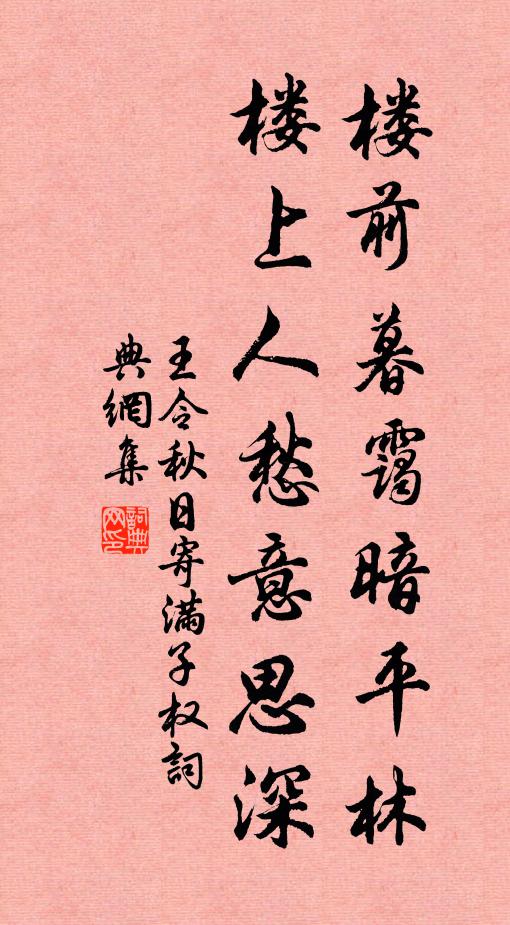 楼前暮靄暗平林
楼上人愁意思深
王令秋日寄滿子权詞
典網集
詞典网印